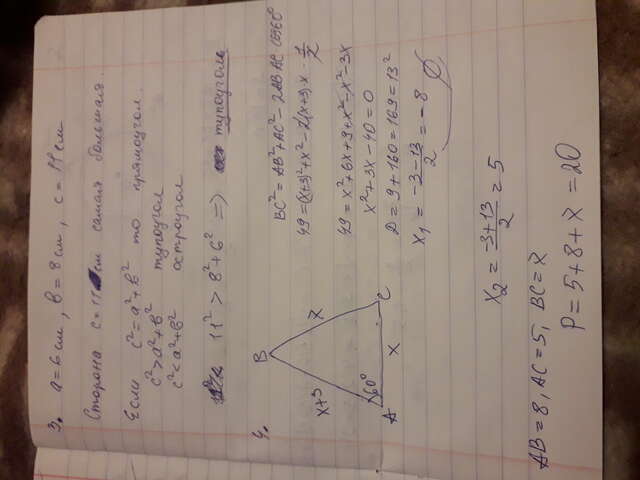 3. a=6см, в=8см, c=11см
Сторона c=11 см самая большая.
Если c²=a²+b² то прямоугол.
c²>a²+b² тупоугол
c²<a²+b² остроугол
11²>8²+6² => тупоуголь
4.
B
x+3
7
60°
A
x
C
BC²=AB²+AC²-2AB AC cos60°
49=(x+3)²+x²-2(x+3)·x·1/2
49=x²+6x+9+x²-x²-3x
x²+3x-40=0
D=9+160=169=13²
x₁=(-3-13)/2=-8 ∅
x₂=(-3+13)/2=5
AB=8, AC=5, BC=7
P=5+8+7=20